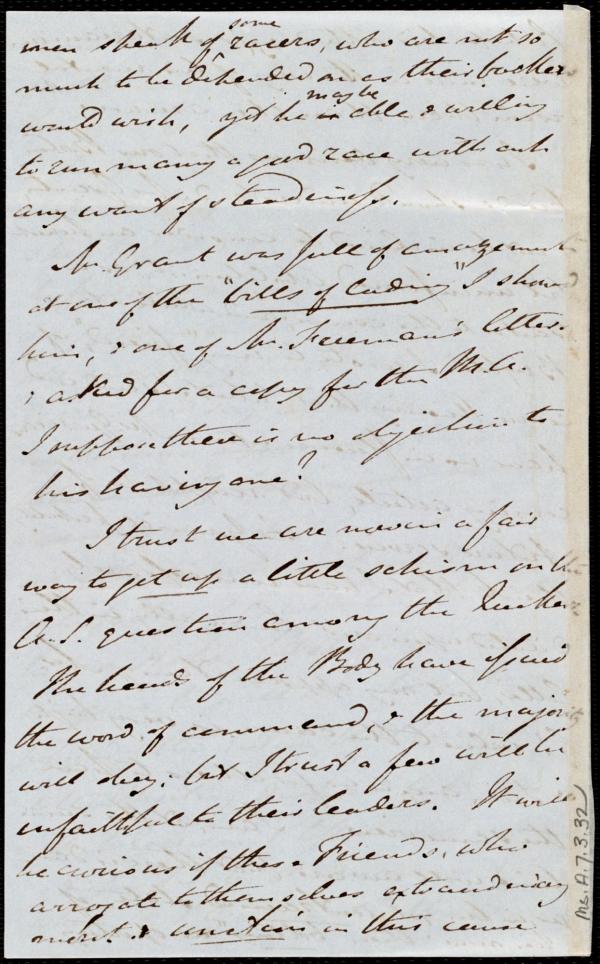 some
men speak of ^ racers, who are not so
much to be depended on as their backers
may be
would wish, yet he is able & willing
to run many a good race without
any want of steadiness.
Mr. Grant was full of amazement
at one of the "bills of Lading" I showed
him, & one of Mr. Freeman's letters.
& asked for a copy for the M.A.
I suppose there is no objection to
his having one?
I trust we are now in a fair
way to get up a little schism on the
A.S. question among the Quakers
The heads of the Body have issued
the word of command, & the majority
will obey: but I trust a few will be
unfaithful to their leaders. It will
be curious if these Friends, who
arrogate to themselves extraordinary
merit & unction in this cause
Ms. A.7.3.32